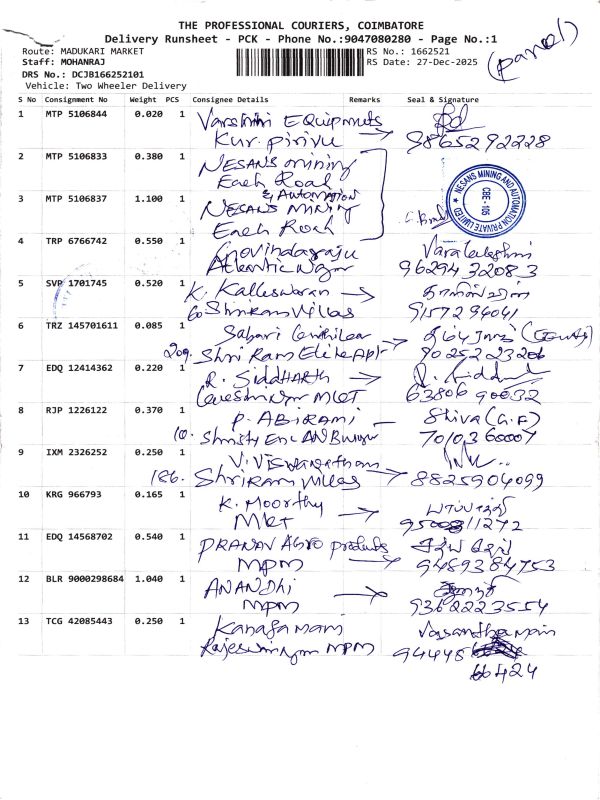 THE PROFESSIONAL COURIERS, COIMBATORE
Delivery Runsheet - PCK - Phone No.:9047080280 - Page No.:1
Route: MADUKARI MARKET
RS No.: 1662521
Staff: MOHANRAJ
RS Date: 27-Dec-2025
DRS No.: DCJB166252101
Vehicle: Two Wheeler Delivery
S No Consignment No Weight PCS Consignee Details Remarks Seal & Signature
1 MTP 5106844 0.020 1 Varshini EQuipmets
Kur. pirivu 9865292228
2 MTP 5106833 0.380 1 NESANS mining
Each Road
3 MTP 5106837 1.100 1 NESANS MINING & Automation
Each Rock
NESANS MINING AND AUTOMATION PRIVATE LIMITED
CBE - 105
4 TRP 6766742 0.550 1 Govindaraju
Atlantic Ngr 9629432083
5 SVP 1701745 0.520 1 K. Kalleswaran
60 Shriram Villas 9157294041
6 TRZ 145701611 0.085 1 Sabari
209. Shri Ram Elite Apt 9025223206
7 EDQ 12414362 0.220 1 R. SIDDHARTH
MKt 6380690032
8 RJP 1226122 0.370 1 P. ABIRAMI Shiva (G.F)
10. 7010360007
9 IXM 2326252 0.250 1 V. VISWANATHAN
186. Shriram Villas 8825904099
10 KRG 966793 0.165 1 K. Moorthy
Mkt
11 EDQ 14568702 0.540 1 PRANAV AGRO products
MPM 9489384753
12 BLR 9000298684 1.040 1 ANANDHI
MPM 9362223554
13 TCG 42085443 0.250 1 Kanagamani
MPM
66424